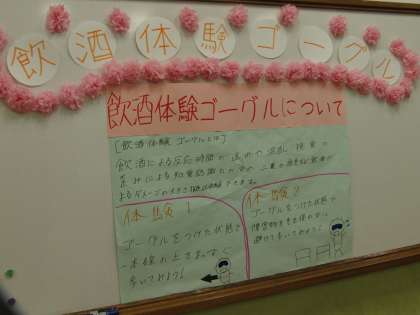 飲酒体験ゴーグル
飲酒体験ゴーグルについて
[飲酒体験ゴーグルとは]
飲酒による反応時間の遅れや混乱、視覚の
歪みによる
体験1
ゴーグルをつけた状態で
一本線の上をまっすぐ
歩いてみよう!
体験2
ゴーグルをつけた状態で
障害物を
避けて歩いてみよう!